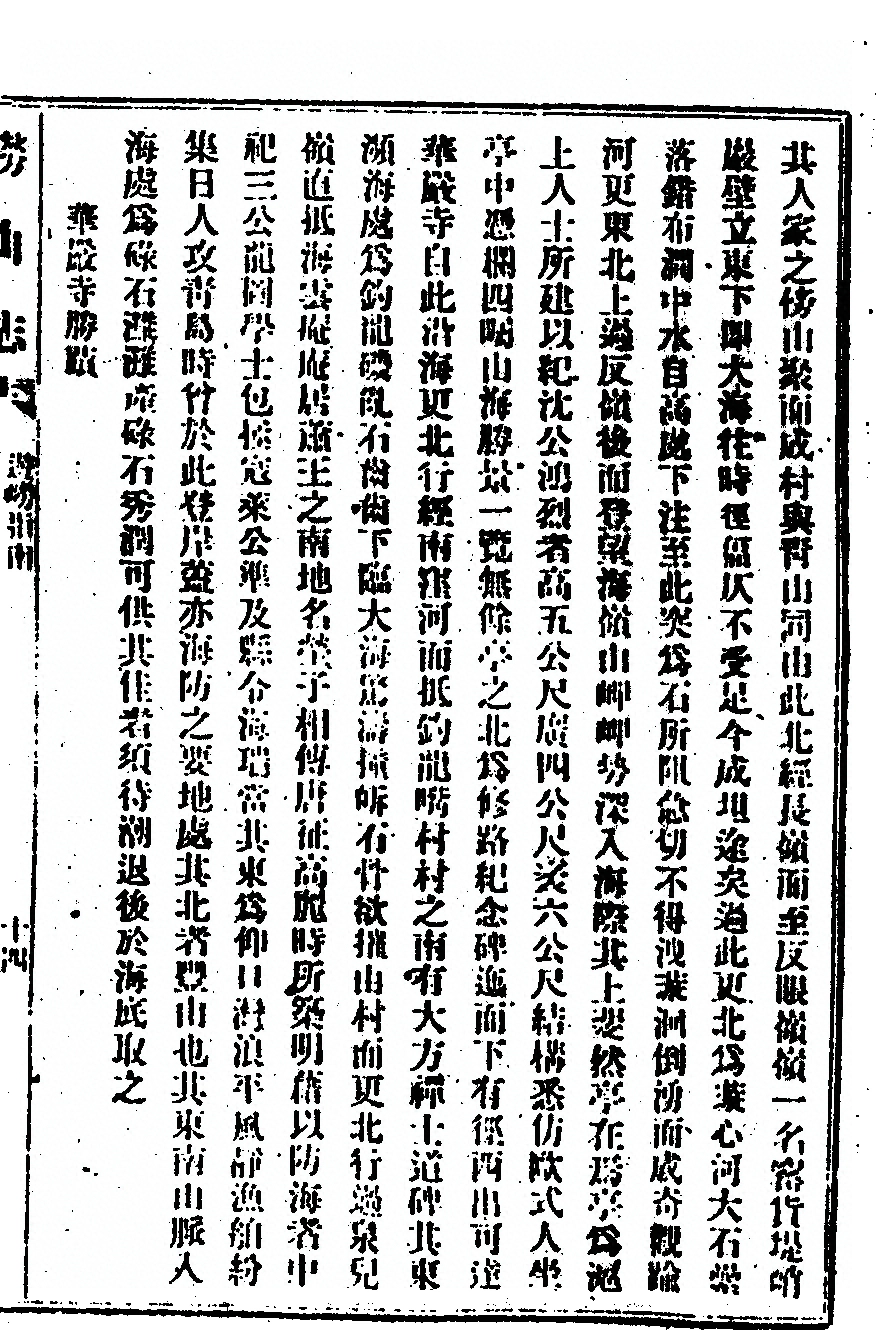 其人家之傍山聚而成村與靑山河由此北經長嶺而至反眼嶺嶺一名窰貨堤峭
巖壁立東下即大海往時徑偪仄不受足今成坦途矣過此更北爲漩心河大石縈
落錯布澗中水自高處下注至此突爲石所阻怠切不得洩漩洄倒湧而成奇觀踰
河更東北上過反嶺後而登望海嶺山岬岬勢深入海際其上翼然亭在焉亭爲滬
上人士所建以紀沈公鴻烈者高五公尺廣四公尺袤六公尺結構悉仿歐式人坐
亭中憑欄四矚山海勝景一覽無餘亭之北爲修路紀念碑迤而下有徑西出可達
華嚴寺自此沿海更北行經南窪河而抵釣龍嘴村村之南有大方禪士道碑其東
瀕海處爲釣龍磯亂石齒齒下臨大海驚濤撞𡶜石骨欲摧由村而更北行過泉兒
嶺直抵海雲庵庵居蕭王之南地名塋子相傳唐征高麗時所築明藉以防海者中
祀三公龍圖學士包拯寇萊公準及縣令海瑞當其東爲仰口灣浪平風靜漁舶紛
集日人攻靑島時曾於此登岸蓋亦海防之要地處其北者豐山也其東南山脈入
海處爲碌石灘灘產碌石秀潤可供其佳者須待潮退後於海底取之
華嚴寺勝蹟
勞山志 游嶗指南 十四